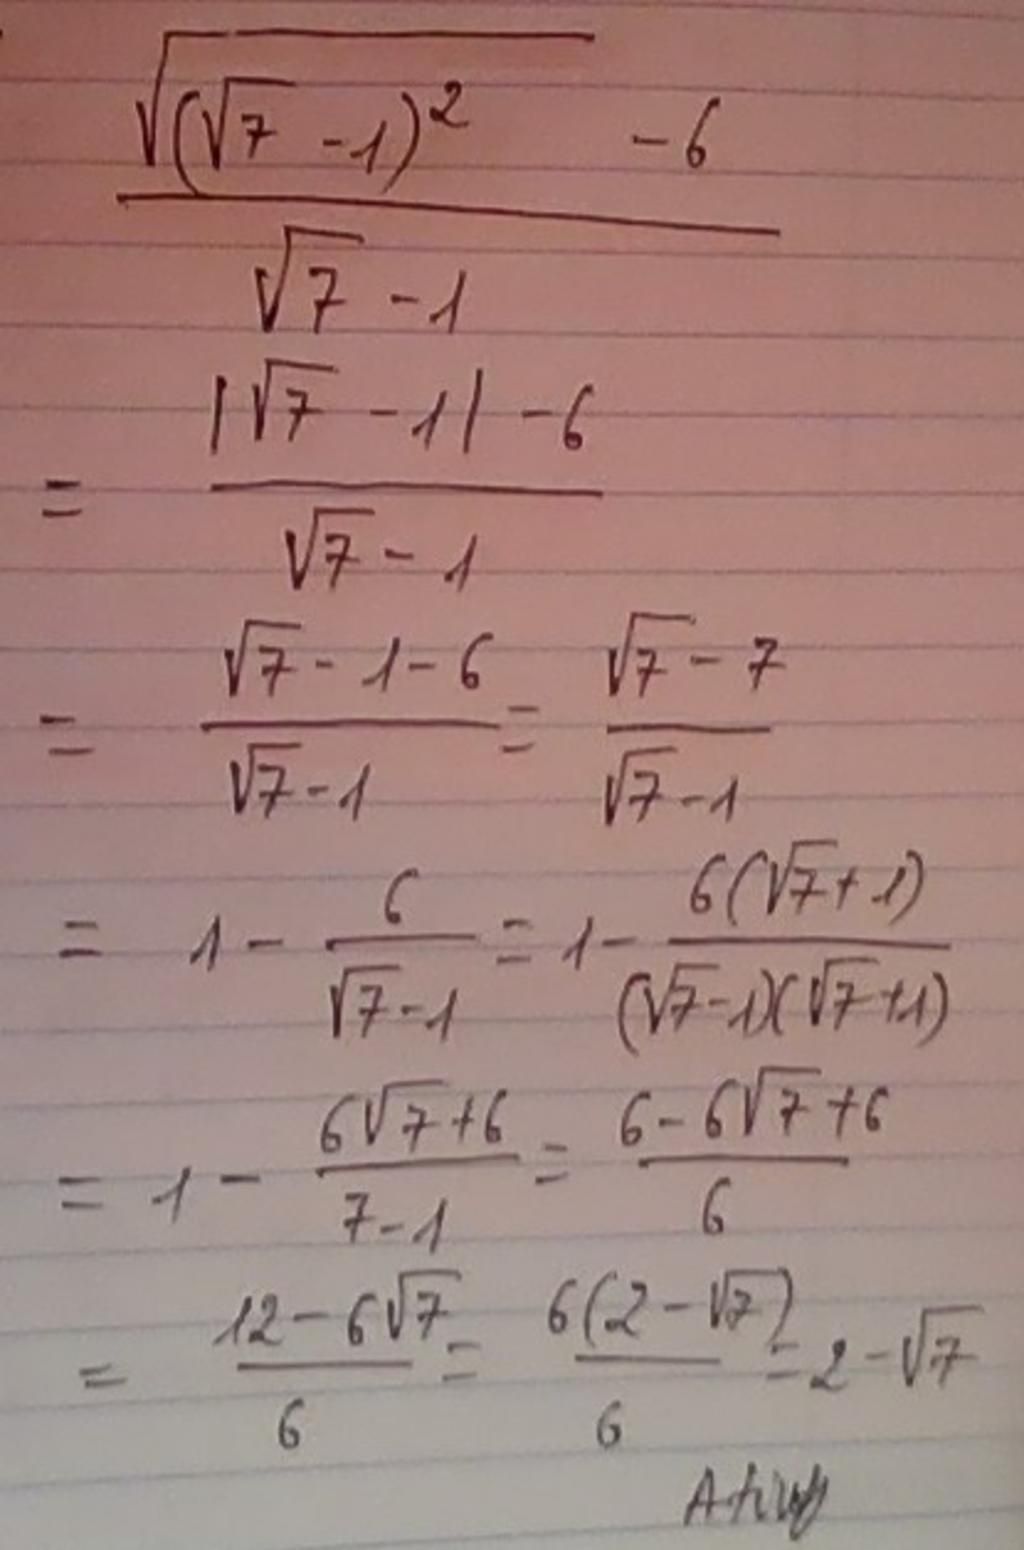 √((√7 - 1)²) - 6
√7 - 1
= |√7 - 1| - 6
√7 - 1
= √7 - 1 - 6 / √7 - 1 = √7 - 7 / √7 - 1
= 1 - 6 / √7 - 1 = 1 - 6(√7 + 1) / (√7 - 1)(√7 + 1)
= 1 - 6√7 + 6 / 7 - 1 = 6 - 6√7 + 6 / 6
= 12 - 6√7 / 6 = 6(2 - √7) / 6 = 2 - √7